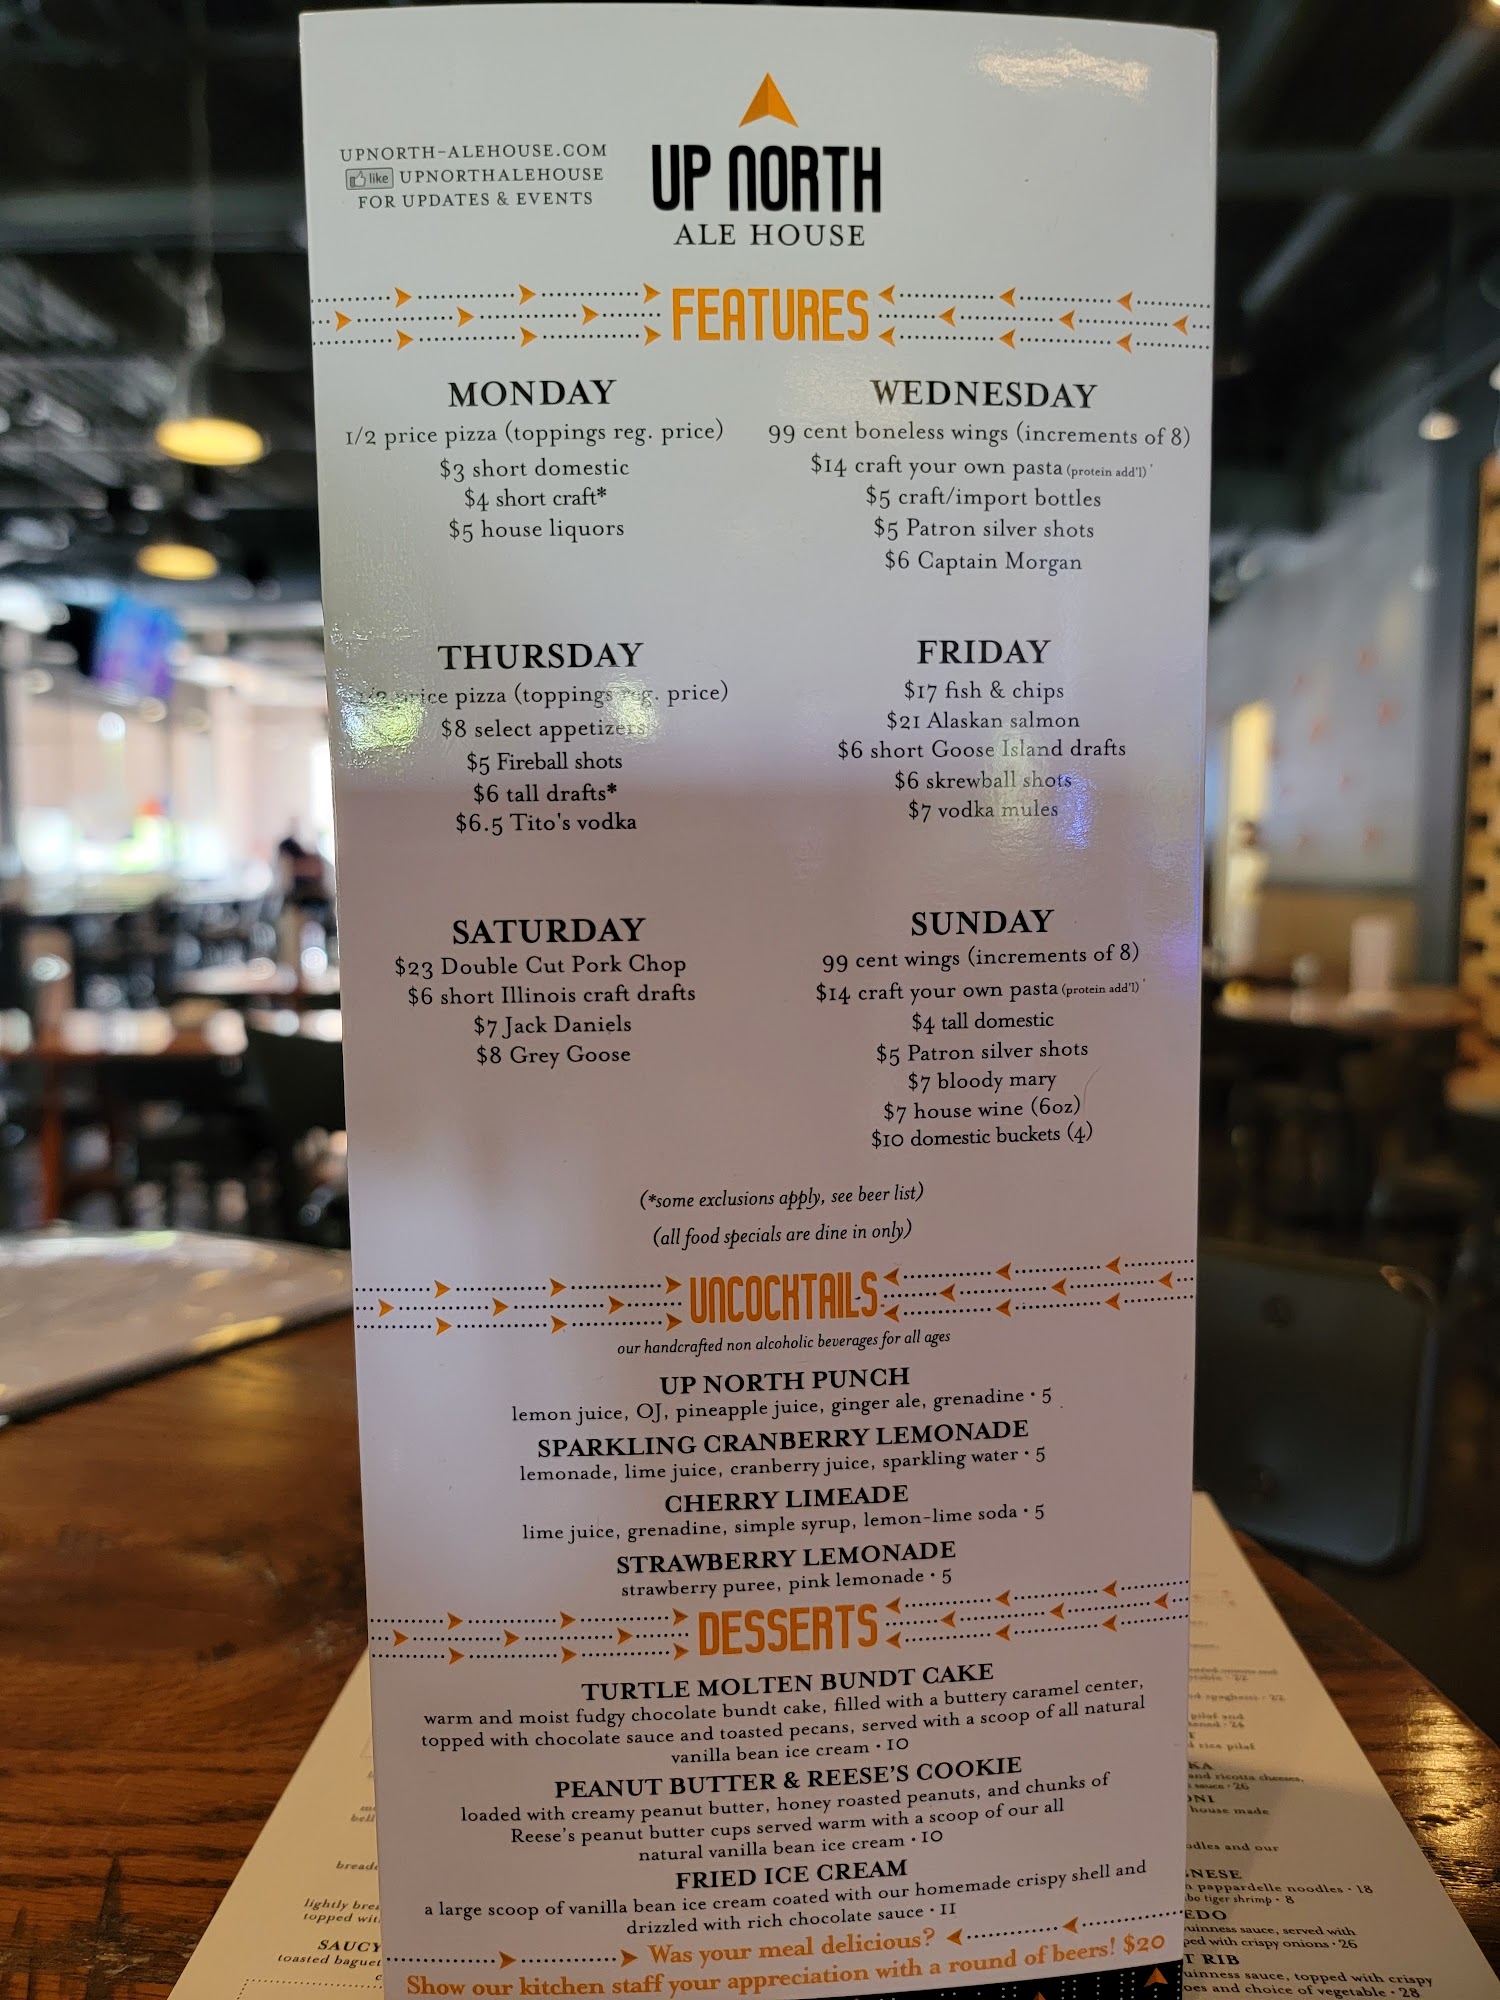 UPNORTH-ALEHOUSE.COM
like UPNORTHALEHOUSE
FOR UPDATES & EVENTS
UP NORTH
ALE HOUSE
FEATURES
MONDAY
1/2 price pizza (toppings reg. price)
$3 short domestic
$4 short craft*
$5 house liquors
WEDNESDAY
99 cent boneless wings (increments of 8)
$14 craft your own pasta (protein add'l)
$5 craft/import bottles
$5 Patron silver shots
$6 Captain Morgan
THURSDAY
1/2 price pizza (toppings reg. price)
$8 select appetizers
$5 Fireball shots
$6 tall drafts*
$6.5 Tito's vodka
FRIDAY
$17 fish & chips
$21 Alaskan salmon
$6 short Goose Island drafts
$6 skrewball shots
$7 vodka mules
SATURDAY
$23 Double Cut Pork Chop
$6 short Illinois craft drafts
$7 Jack Daniels
$8 Grey Goose
SUNDAY
99 cent wings (increments of 8)
$14 craft your own pasta (protein add'l)
$4 tall domestic
$5 Patron silver shots
$7 bloody mary
$7 house wine (6oz)
$10 domestic buckets (4)
(*some exclusions apply, see beer list)
(all food specials are dine in only)
UNCOCKTAILS
our handcrafted non alcoholic beverages for all ages
UP NORTH PUNCH
lemon juice, OJ, pineapple juice, ginger ale, grenadine • 5
SPARKLING CRANBERRY LEMONADE
lemonade, lime juice, cranberry juice, sparkling water • 5
CHERRY LIMEADE
lime juice, grenadine, simple syrup, lemon-lime soda • 5
STRAWBERRY LEMONADE
strawberry puree, pink lemonade • 5
DESSERTS
TURTLE MOLTEN BUNDT CAKE
warm and moist fudgy chocolate bundt cake, filled with a buttery caramel center,
topped with chocolate sauce and toasted pecans, served with a scoop of all natural
vanilla bean ice cream • 10
PEANUT BUTTER & REESE'S COOKIE
loaded with creamy peanut butter, honey roasted peanuts, and chunks of
Reese's peanut butter cups served warm with a scoop of our all
natural vanilla bean ice cream • 10
FRIED ICE CREAM
a large scoop of vanilla bean ice cream coated with our homemade crispy shell and
drizzled with rich chocolate sauce • 11
Was your meal delicious?
Show our kitchen staff your appreciation with a round of beers! $20
lightly
topped
SAUCY
toasted
and ricotta cheese,
sauce • 26
house made
and our
pappardelle noodles • 18
tiger shrimp • 8
sauce, served with
with crispy onions • 26
RIB
sauce, topped with crispy
and choice of vegetable • 28